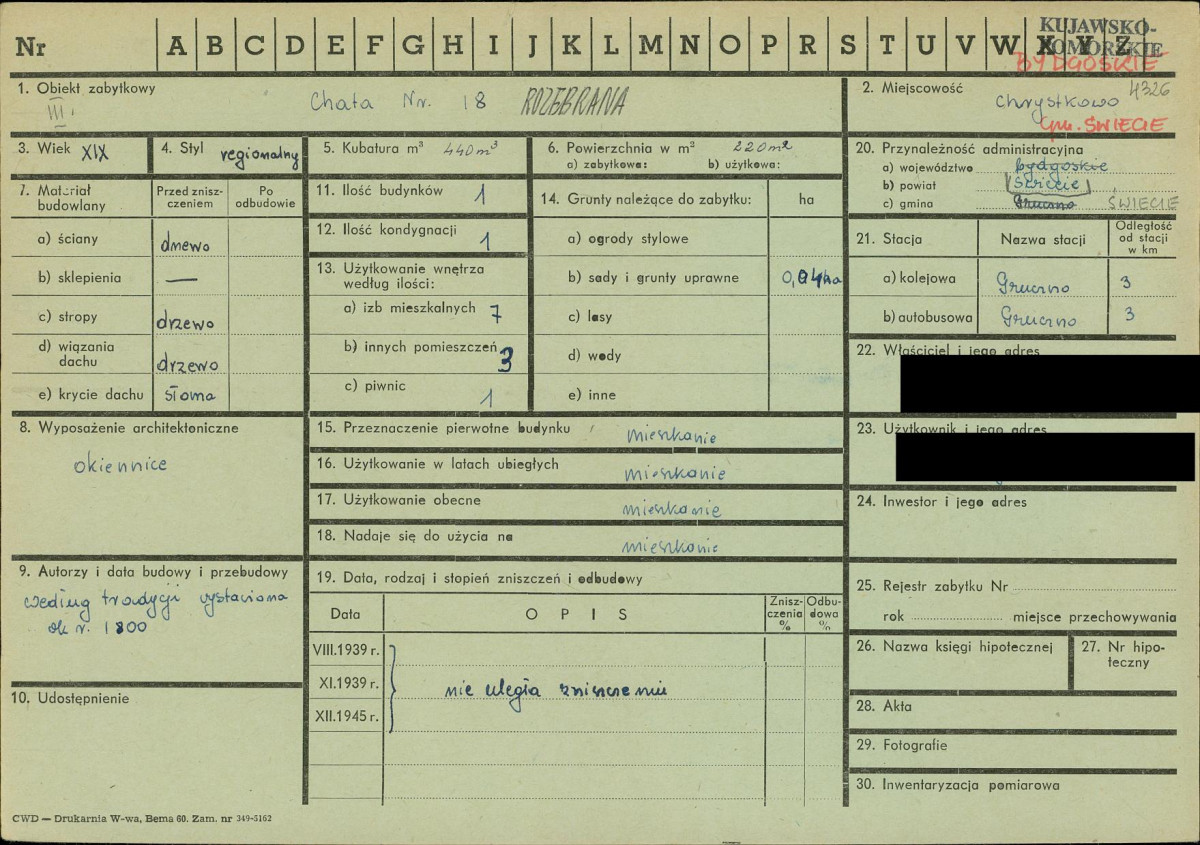 Nr A B C D E F G H I J K L M N O P R S T U V W X Y Z
KUJAWSKO-
POMORSKIE
BYDGOSKIE
1. Obiekt zabytkowy
III.
Chata Nr. 18 ROZEBRANA
2. Miejscowość 4326
Chrystkowo
gm. ŚWIECIE
3. Wiek XIX
4. Styl regionalny
5. Kubatura m³ 440 m³
6. Powierzchnia w m² 220 m²
a) zabytkowa: b) użytkowa:
20. Przynależność administracyjna
a) województwo bydgoskie
b) powiat Świecie
c) gmina Gruczno ŚWIECIE
7. Materiał budowlany
Przed zniszczeniem
Po odbudowie
a) ściany drzewo
b) sklepienia —
c) stropy drzewo
d) wiązania dachu drzewo
e) krycie dachu słoma
11. Ilość budynków 1
12. Ilość kondygnacji 1
13. Użytkowanie wnętrza według ilości:
a) izb mieszkalnych 7
b) innych pomieszczeń 3
c) piwnic 1
14. Grunty należące do zabytku: ha
a) ogrody stylowe
b) sady i grunty uprawne 0,04ha
c) lasy
d) wody
e) inne
21. Stacja Nazwa stacji Odległość od stacji w km
a) kolejowa Gruczno 3
b) autobusowa Gruczno 3
22. Właściciel i jego adres
23. Użytkownik i jego adres
24. Inwestor i jego adres
8. Wyposażenie architektoniczne
okiennice
15. Przeznaczenie pierwotne budynku mieszkanie
16. Użytkowanie w latach ubiegłych mieszkanie
17. Użytkowanie obecne mieszkanie
18. Nadaje się do użycia na mieszkanie
9. Autorzy i data budowy i przebudowy
według tradycji wystawiona
ok r. 1800
10. Udostępnienie
19. Data, rodzaj i stopień zniszczeń i odbudowy
Data OPIS Zniszczenia % Odbudowa %
VIII.1939 r.
XI.1939 r. nie uległa zniszczeniu
XII.1945 r.
25. Rejestr zabytku Nr
rok miejsce przechowywania
26. Nazwa księgi hipotecznej
27. Nr hipoteczny
28. Akta
29. Fotografie
30. Inwentaryzacja pomiarowa
CWD — Drukarnia W-wa, Bema 60. Zam. nr 349-5162